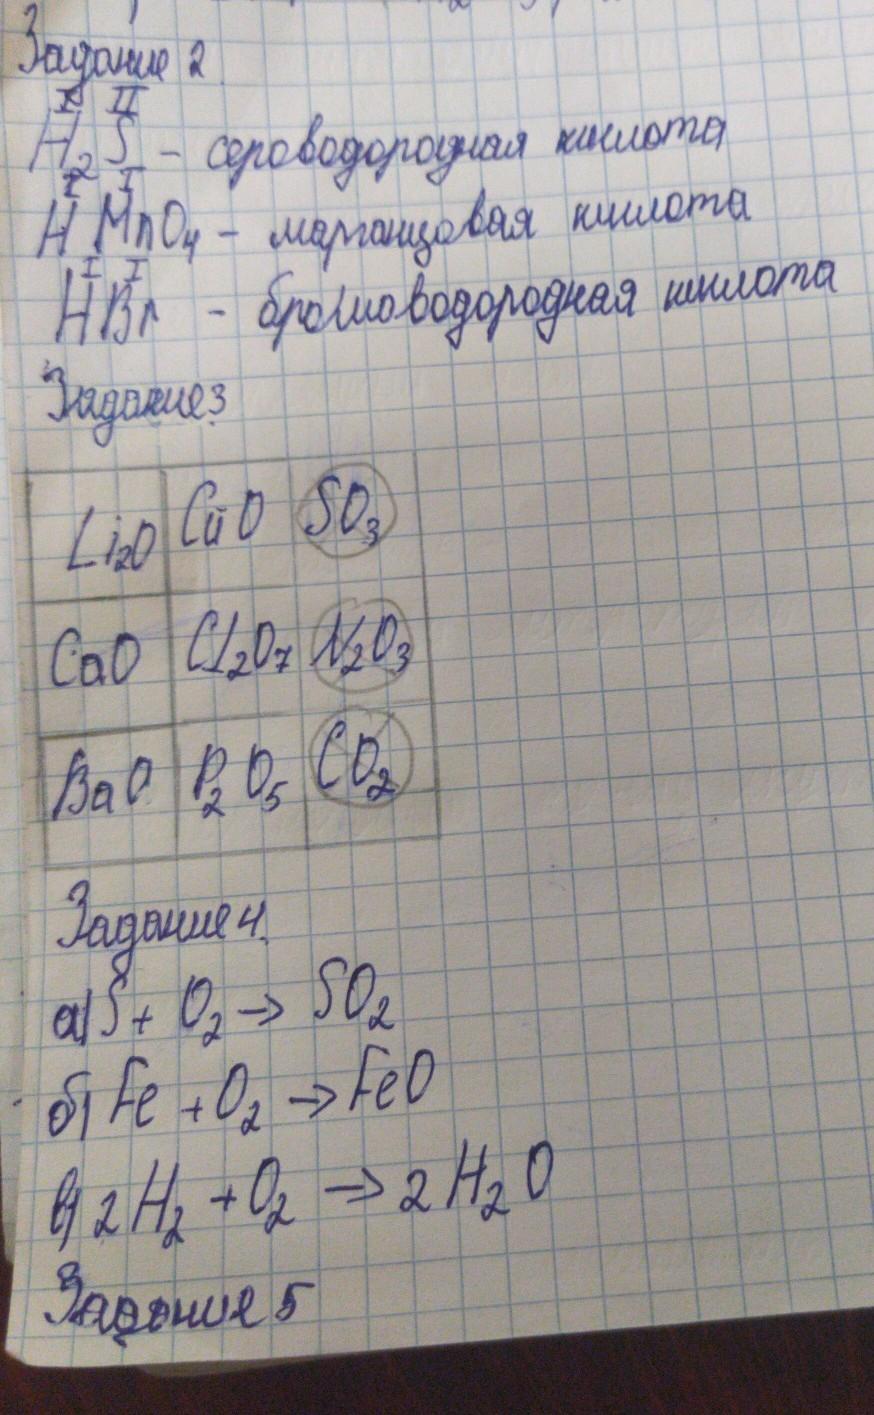 Задание 2
I II
H₂S - сероводородная кислота
I I
HMnO₄ - марганцовая кислота
I I
HBr - бромоводородная кислота
Задание 3
Li₂O CuO SO₃
CaO Cl₂O₇ N₂O₃
BaO P₂O₅ CO₂
Задание 4
а) S + O₂ → SO₂
б) Fe + O₂ → FeO
в) 2H₂ + O₂ → 2H₂O
Задание 5